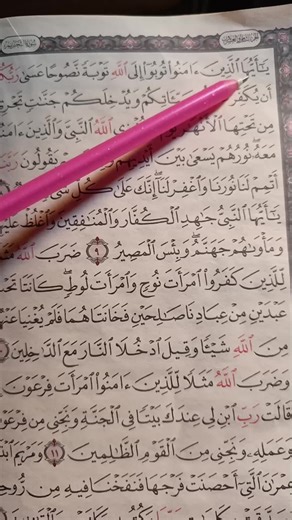 سُورَةُ التَّحْرِيمِ
يَٰٓأَيُّهَا ٱلَّذِينَ ءَامَنُواْ تُوبُوٓاْ إِلَى ٱللَّهِ تَوْبَةً نَّصُوحًا عَسَىٰ
أَن يُكَفِّرَ سَيِّـَٔاتِكُمْ وَيُدْخِلَكُمْ جَنَّٰتٍ تَجْرِي
مِن تَحْتِهَا ٱلْأَنْهَٰرُ يُخْزِي ٱللَّهُ ٱلنَّبِيَّ وَٱلَّذِينَ
مَعَهُۥ نُورُهُمْ يَسْعَىٰ بَيْنَ أَيْدِيهِمْ يَقُولُونَ
أَتْمِمْ لَنَا نُورَنَا وَٱغْفِرْ لَنَآ إِنَّكَ عَلَىٰ كُلِّ
يَٰٓأَيُّهَا ٱلنَّبِيُّ جَٰهِدِ ٱلْكُفَّارَ وَٱلْمُنَٰفِقِينَ وَٱغْلُظْ
وَمَأْوَىٰهُمْ جَهَنَّمُ وَبِئْسَ ٱلْمَصِيرُ ٩ ضَرَبَ ٱللَّهُ
لِّلَّذِينَ كَفَرُواْ ٱمْرَأَتَ نُوحٍ وَٱمْرَأَتَ لُوطٍ كَانَتَا
عَبْدَيْنِ مِنْ عِبَادِنَا صَٰلِحَيْنِ فَخَانَتَاهُمَا فَلَمْ يُغْنِيَا
مِنَ ٱللَّهِ شَيْـًٔا وَقِيلَ ٱدْخُلَا ٱلنَّارَ مَعَ ٱلدَّٰخِلِينَ
وَضَرَبَ ٱللَّهُ مَثَلًا لِّلَّذِينَ ءَامَنُواْ ٱمْرَأَتَ فِرْعَوْنَ
قَالَتْ رَبِّ ٱبْنِ لِي عِندَكَ بَيْتًا فِي ٱلْجَنَّةِ وَنَجِّنِي مِن
وَعَمَلِهِۦ وَنَجِّنِي مِنَ ٱلْقَوْمِ ٱلظَّٰلِمِينَ ١١ وَمَرْيَمَ
عِمْرَٰنَ ٱلَّتِيٓ أَحْصَنَتْ فَرْجَهَا فَنَفَخْنَا فِيهِ مِن